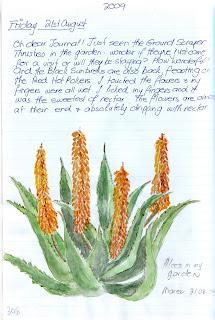 2009
Friday 21st August
Oh dear Journal! Just seen the Ground Scraper
Thrushes in the garden - wonder if they're just come
for a visit or will they be staying? How wonderful!
And the Black Sunbirds are also back, feasting on
the Red Hot Pokers. I touched the flowers & my
fingers were all wet. I licked my fingers and it
was the sweetest of nectar. The flowers are almost
at their end & absolutely dripping with nectar
Aloes in my
garden
Maree